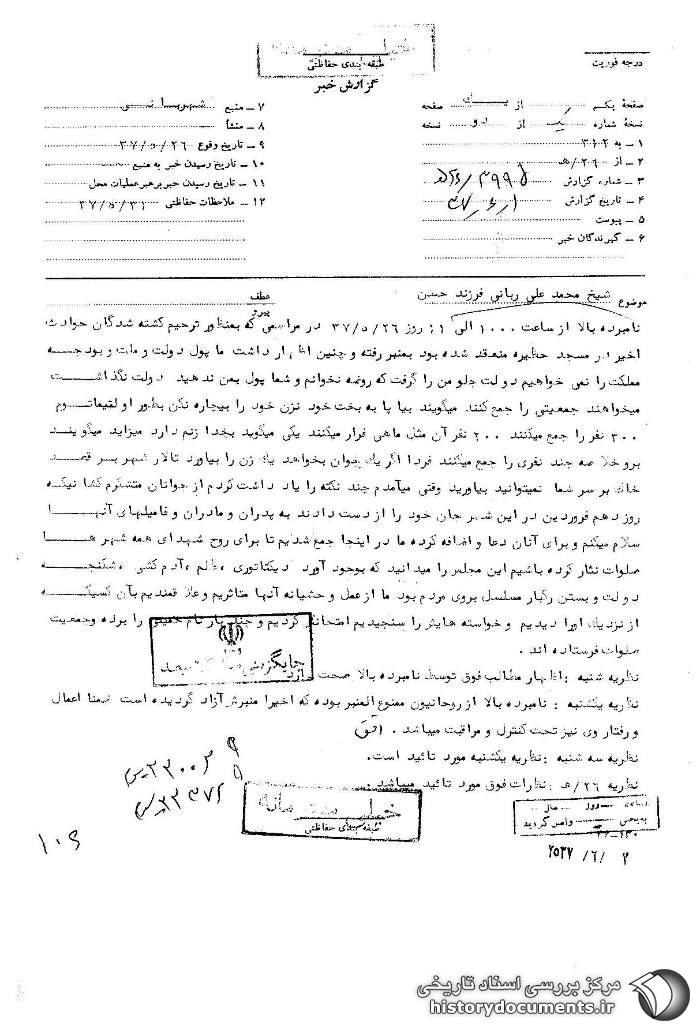 خیلی محرمانه
طبقه بندی حفاظتی
گزارش خبر
درجه فوریت
صفحه یکم از یک صفحه
نسخه شماره یک از دو نسخه
۱ ـ به ۳۱۲
۲ ـ از ۲۶/هـ
۳ ـ شماره گزارش
۴ ـ تاریخ گزارش
۵ ـ پیوست
۶ ـ گیرندگان خبر
۷ ـ منبع
۸ ـ منشأ
۹ ـ تاریخ وقوع ۳۷/۵/۲۶
۱۰ ـ تاریخ رسیدن خبر به منبع
۱۱ ـ تاریخ رسیدن خبر برهبر عملیات محل
۱۲ ـ ملاحظات حفاظتی ۳۷/۵/۳۱
موضوع شیخ محمد علی ربانی فرزند حسن
عطف
پیرو
نامبرده بالا از ساعت ۱۰۰۰ الی روز ۳۷/۵/۲۶ در مراسمی که بمنظور ترحیم کشته شدگان حوادث
اخیر در مسجد حظیره منعقد شده بود بمنبر رفته و چنین اظهار داشت ما پول دولت و ملت و بودجه
مملکت را نمی خواهیم دولت جلو من را گرفت که روضه نخوانم و شما پول بمن ندهید دولت نگذاشت
میخواهند جمعیتی را جمع کنند میگویند بیا پا به بخت خود نزن خود را بیچاره نکن بطور او لقیماتوم
۳۰۰ نفر را جمع میکنند ۲۰۰ نفر آن مثل ماهی فرار میکنند یکی میگوید بخدا زنم دارد میزاید میگویند
برو خلاصه چند نفری را جمع میکنند فردا اگر یک جوان بخواهد یک زن را بیاورد تالار شهر بسر قصد
خاک بر سر شما نمیتوانید بیاورید وقتی میآمدم چند نکته را یاد داشت کردم از جوانان متشکرم کسانیکه
روز دهم فروردین در این شهر جان خود را از دست دادند به پدران و مادران و فامیلهای آنها
سلام میکنم و برای آنان دعا و اضافه کرد ما در اینجا جمع شدیم تا برای روح شهدای همه شهرها
صلوات نثار کرده باشیم این مجلس را میدانید که بوجود آورد دیکتاتوری ، ظلم ، آدم کشی ، شکنجه
دولت و بستن رگبار مسلسل بروی مردم بود ما از عمل وحشیانه آنها متاثریم و علاقمندیم بآن کسیکه
از نزدیک اورا دیدیم و خواسته هایش را سنجیدیم امتحان کردیم و چند بار نام خمینی را برده و جمعیت
صلوات فرستاده اند .
نظریه شنبه : اظهار مطالب فوق توسط نامبرده بالا صحت دارد
نظریه یکشنبه : نامبرده بالا از روحانیون ممنوع المنبر بوده که اخیرا منبرش آزاد گردیده است ضمنا اعمال
و رفتار وی نیز تحت کنترل و مراقبت میباشد . افق
نظریه سه شنبه : نظریه یکشنبه مورد تائید است.
نظریه ۲۶/هـ : نظرات فوق مورد تائید میباشد .
خیلی محرمانه
طبقه بندی حفاظتی
واصل گردید
۲۵۳۷/۶/۲
۱۰۶
مرکز بررسی اسناد تاریخی
historydocuments.ir